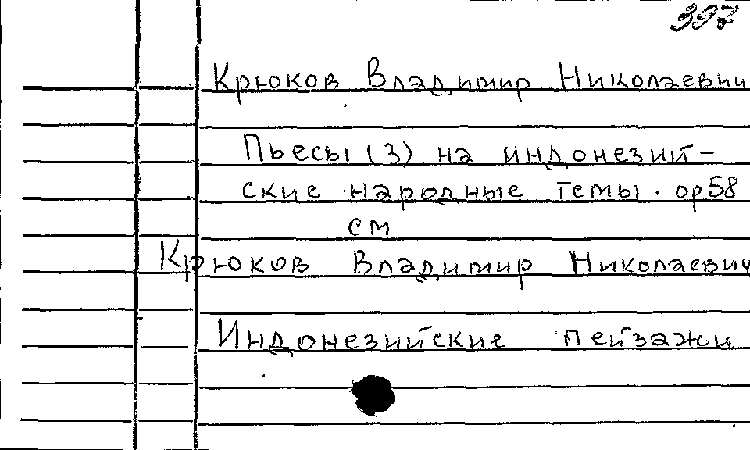 397
Крюков Владимир Николаевич
Пьесы (3) на индонезий-
ские народные темы. ор 58
см
Крюков Владимир Николаевич
Индонезийские пейзажи